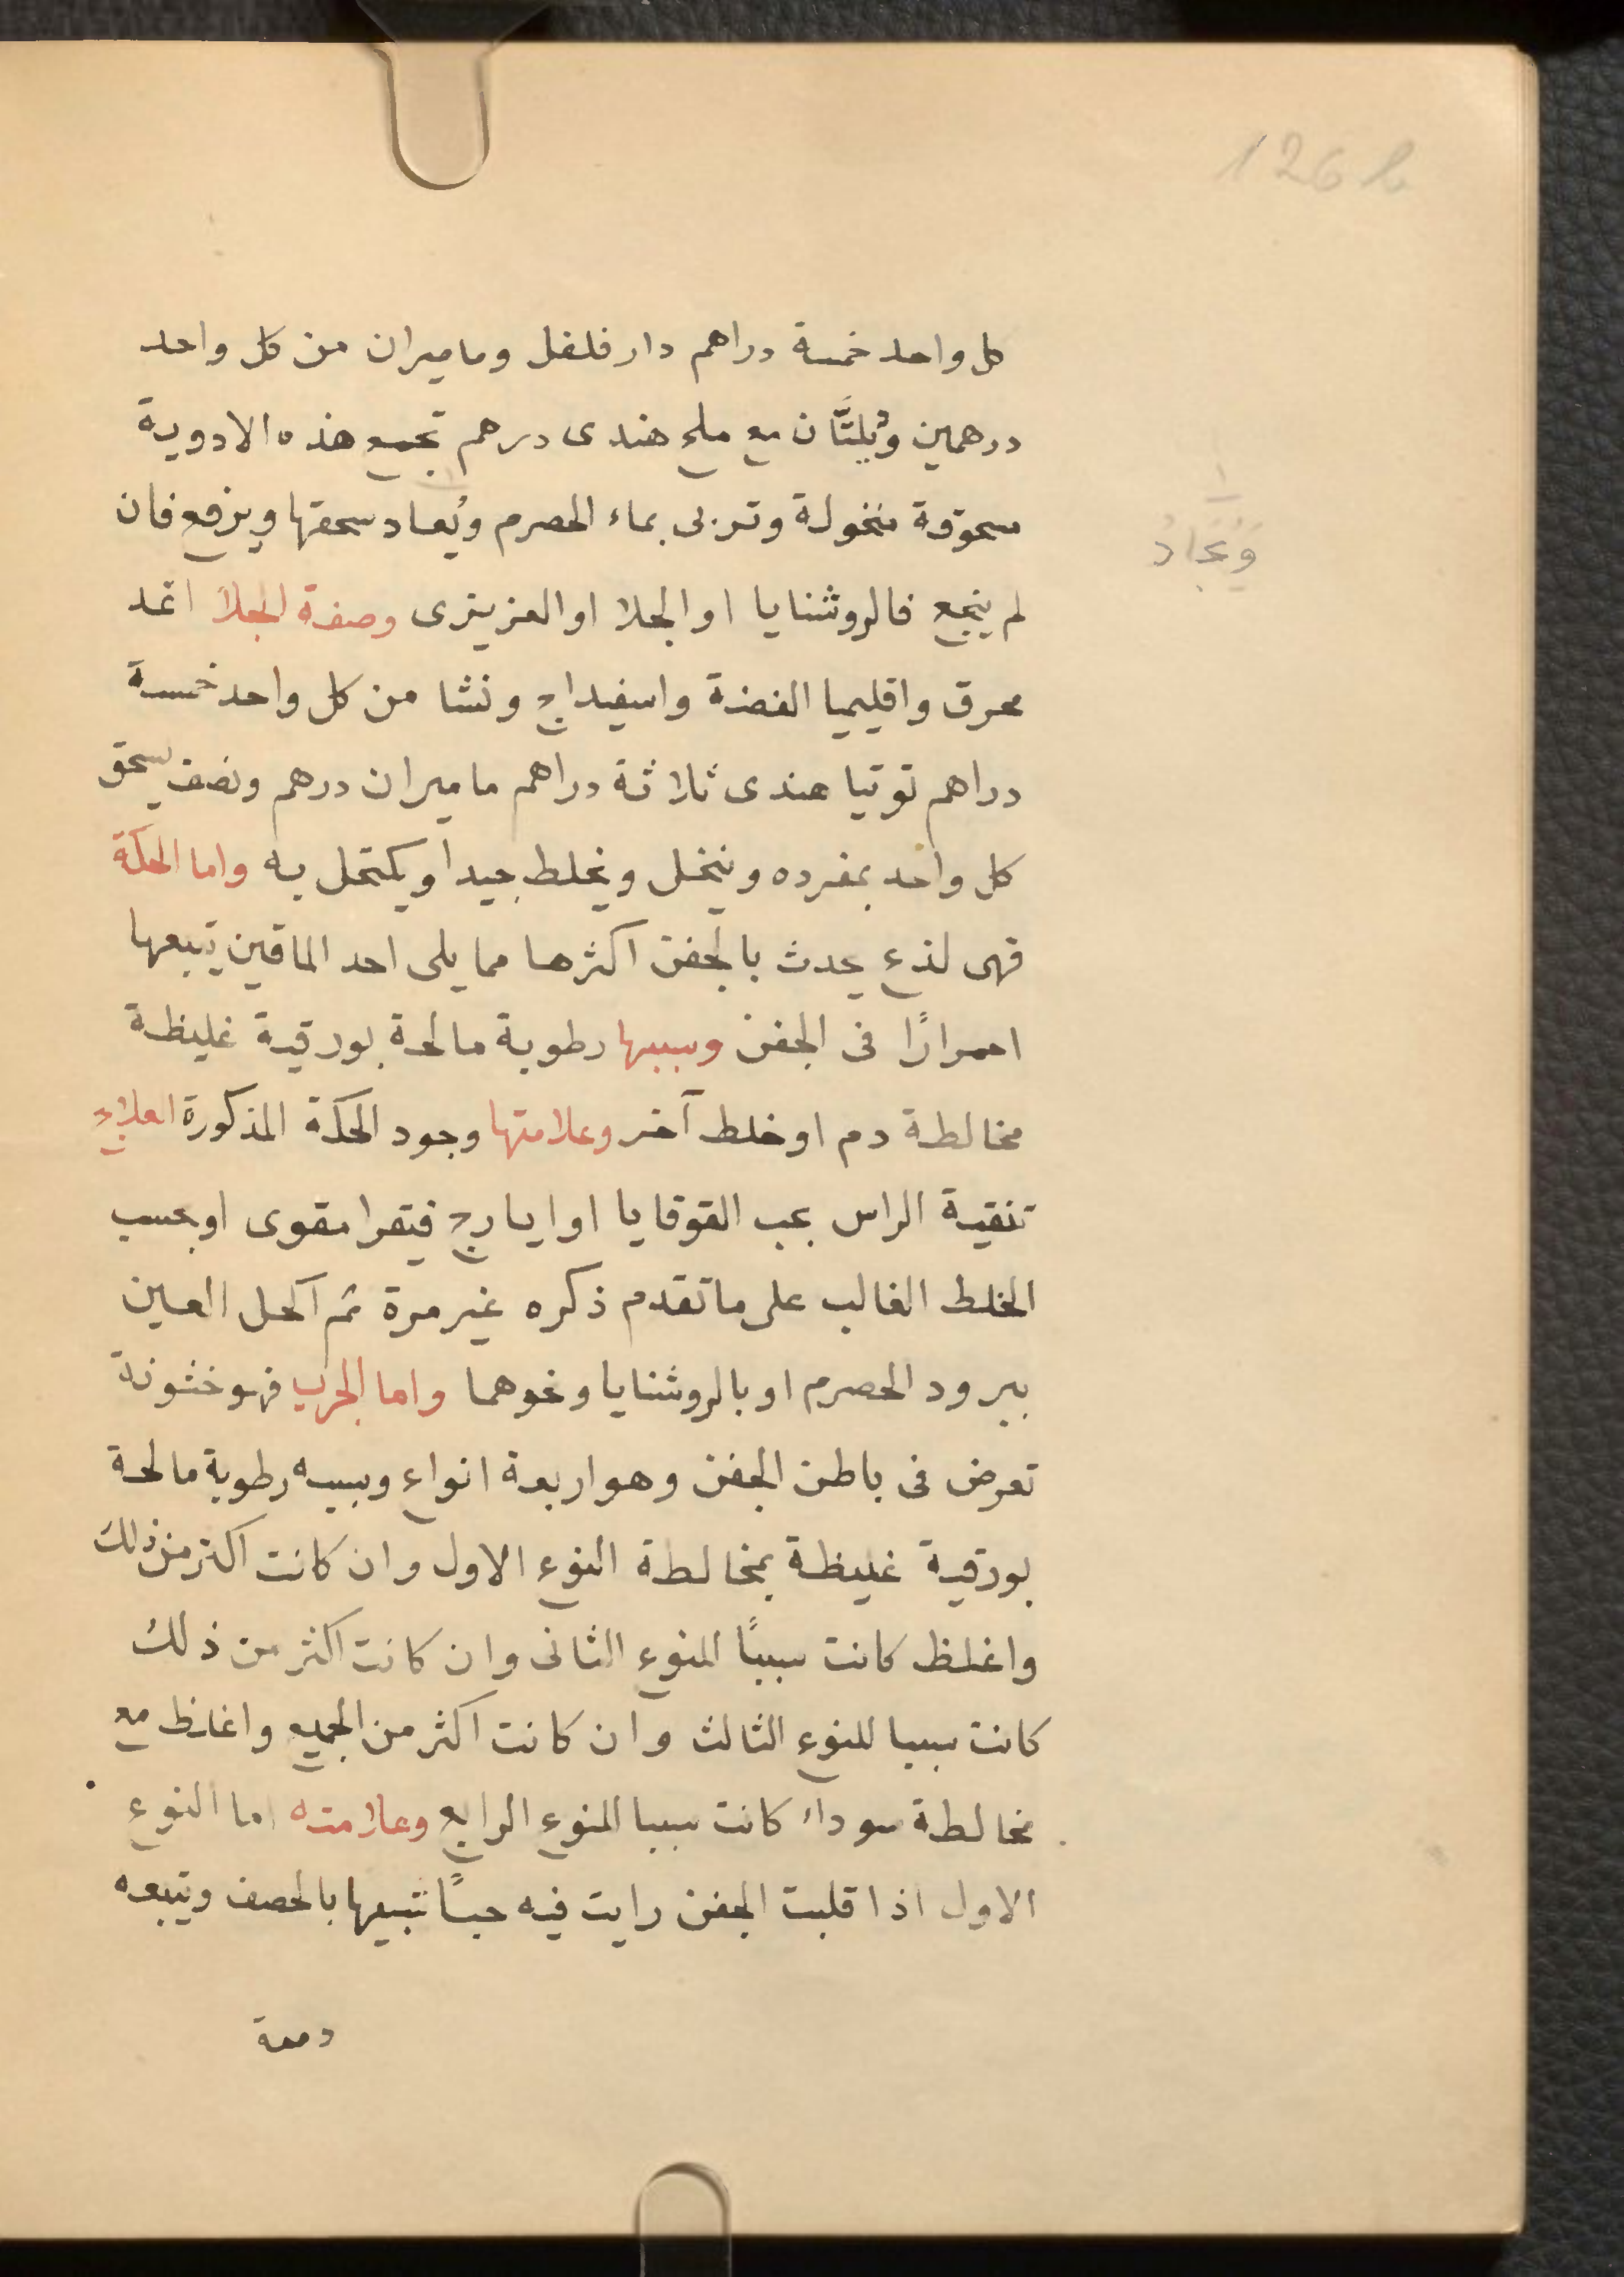 126 b
كل واحد خمسة دراهم دار فلفل وماميران من كل واحد
درهمين وثلثان مع ملح هندى درهم تجمع هذه الادوية
مسحوقة منخولة وتربى بماء الحصرم ويُعاد سحقها ويرفع فان
١
وَيُجَادُ
لم ينجع فالروشنايا او الجلا او العزيزى وصفة الجلا اثمد
محرق واقليميا الفضة واسفيداج ونشا من كل واحد خمسة
دراهم توتيا هندى ثلاثة دراهم ماميران درهم ونصف يسحق
كل واحد بمفرده وينخل ويخلط جيداً ويكتحل به واما الحكة
فهى لذع يحدث بالجفن اكثرها مما يلى احد الماقين يتبعها
احمرارًا فى الجفن وسببها رطوبة مالحة بورقية غليظة
مخالطة دم او خلط آخر وعلامتها وجود الحكة المذكورة العلاج
تنقية الراس بحب القوقايا او ايارج فيقرا مقوى او بحسب
الخلط الغالب على ما تقدم ذكره غير مرة ثم اكحل العين
ببرود الحصرم او بالروشنايا ونحوهما واما الجرب فهو خشونة
تعرض فى باطن الجفن وهو اربعة انواع وسببه رطوبة مالحة
بورقية غليظة بمخالطة النوع الاول وان كانت اكثر من ذلك
واغلظ كانت سببًا للنوع الثانى وان كانت اكثر من ذلك
كانت سببا للنوع الثالث وان كانت اكثر من الجميع واغلظ مع
مخالطة سوداء كانت سببا للنوع الرابع وعلامته اما النوع
الاول اذا قلبت الجفن رايت فيه حبًا شبيها بالحصف ويتبعه
دمعة